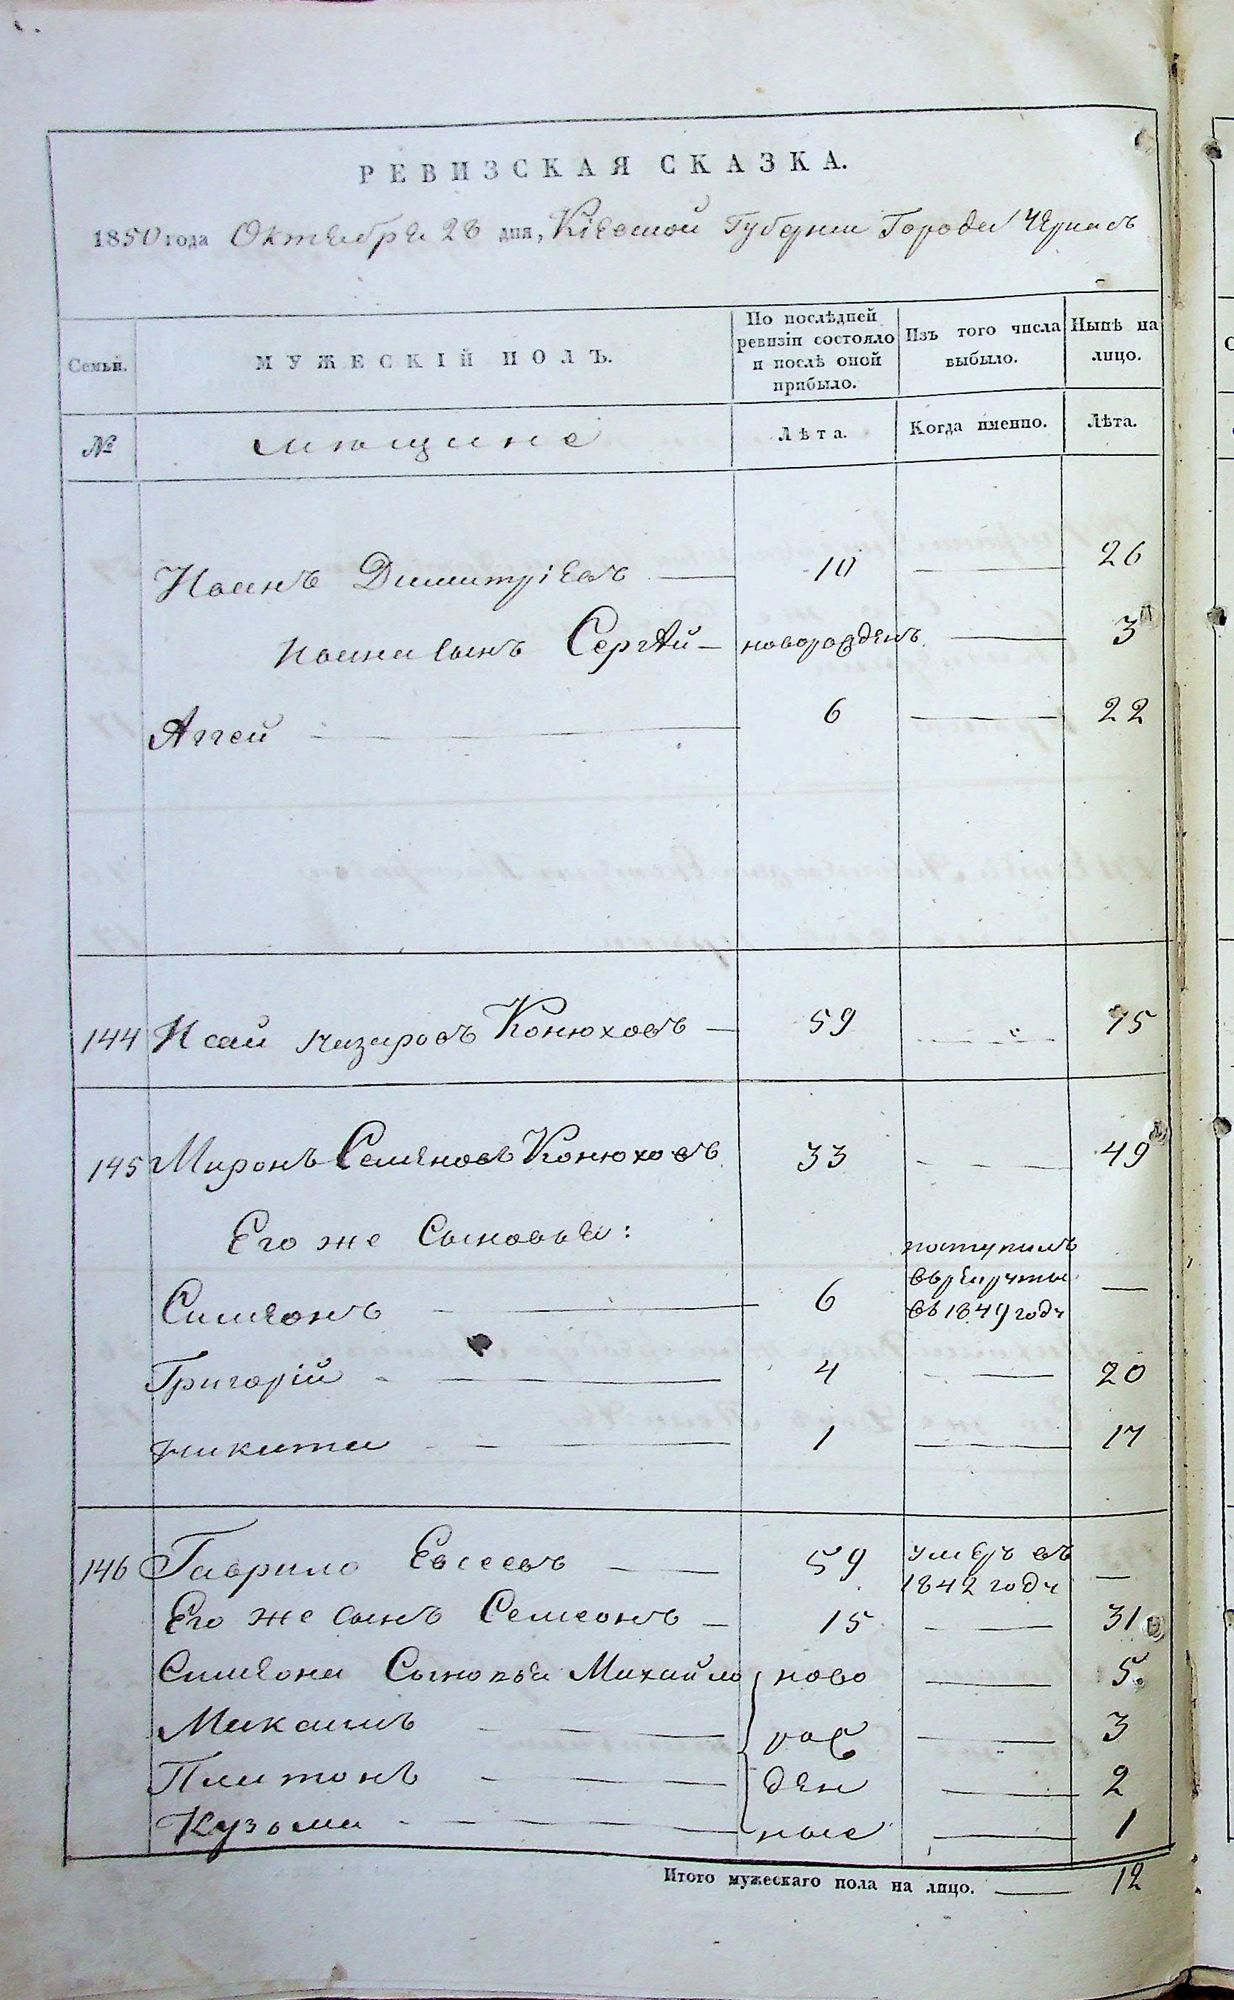 РЕВИЗСКАЯ СКАЗКА.
1850 года Октября 28 дня, Кіевской Губерніи Города Черкасъ
Семьи.
МУЖЕСКІЙ ПОЛЪ.
По послѣдней ревизіи состояло и послѣ оной прибыло.
Изъ того числа выбыло.
Нынѣ на лицо.
№
мѣщине
Лѣта.
Когда именно.
Лѣта.
Иванъ Димитріевъ — 10 — 26
Ивана сынъ Сергѣй — новорожденъ — 3
Аггей — 6 — 22
144 Исай Назаровъ Конюховъ — 59 — " — 75
145 Миронъ Семеновъ Конюховъ 33 — 49
Его же Сыновья:
Симеонъ — 6 поступилъ въ рекруты въ 1849 году —
Григорій — 4 — 20
Никита — 1 — 17
146 Гаврило Евсеевъ — 59 умеръ въ 1842 году —
Его же сынъ Семеонъ — 15 — 31
Симеона Сыновья Михайло ново — 5
Максимъ — рож — 3
Платонъ — ден — 2
Кузьма — ные — 1
Итого мужескаго пола на лицо. — 12